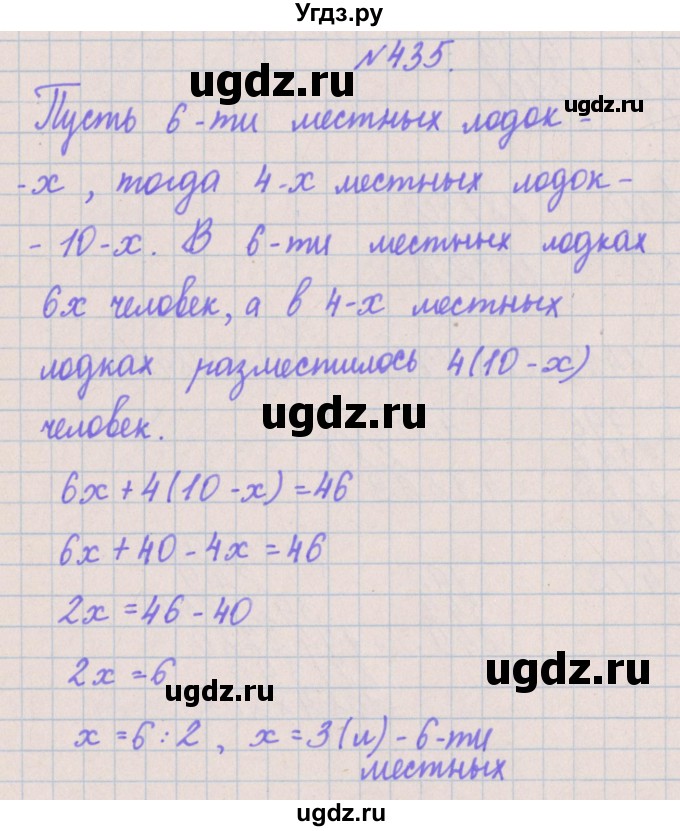 Угдз.ру
№435.
ugdz.ru
ugdz.ru
Пусть 6-ти местных лодок -
-x, тогда 4-х местных лодок -
- 10-x. В 6-ти местных лодках
6x человек, а в 4-х местных
лодках разместилось 4(10-x)
человек.
ugdz.ru
6x+4(10-x)=46
6x+40-4x=46
2x=46-40
2x=6
ugdz.ru
ugdz.ru
x=6:2, x=3(л)-6-ти
местных
ugdz.ru